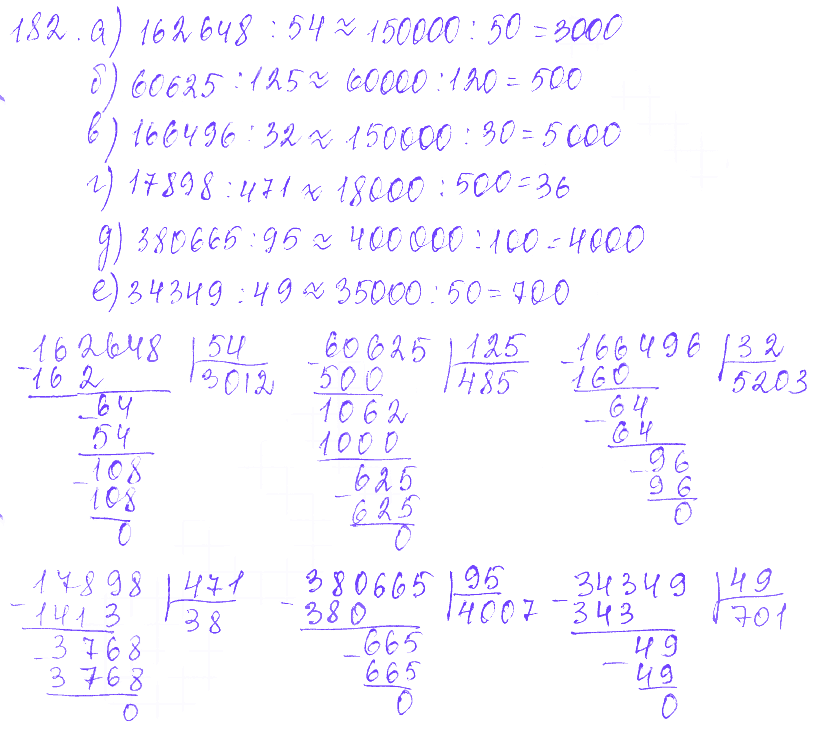 182. а) 162648 : 54 ≈ 150000 : 50 = 3000
б) 60625 : 125 ≈ 60000 : 120 = 500
в) 166496 : 32 ≈ 150000 : 30 = 5000
г) 17898 : 471 ≈ 18000 : 500 = 36
д) 380665 : 95 ≈ 400000 : 100 = 4000
е) 34349 : 49 ≈ 35000 : 50 = 700
162648 | 54
- 162 3012
- 64
54
- 108
108
0
- 60625 | 125
500 485
1062
1000
- 625
625
0
- 166496 | 32
160 5203
- 64
64
- 96
96
0
- 17898 | 471
1413 38
- 3768
3768
0
- 380665 | 95
380 4007
- 665
665
0
- 34349 | 49
343 701
- 49
49
0